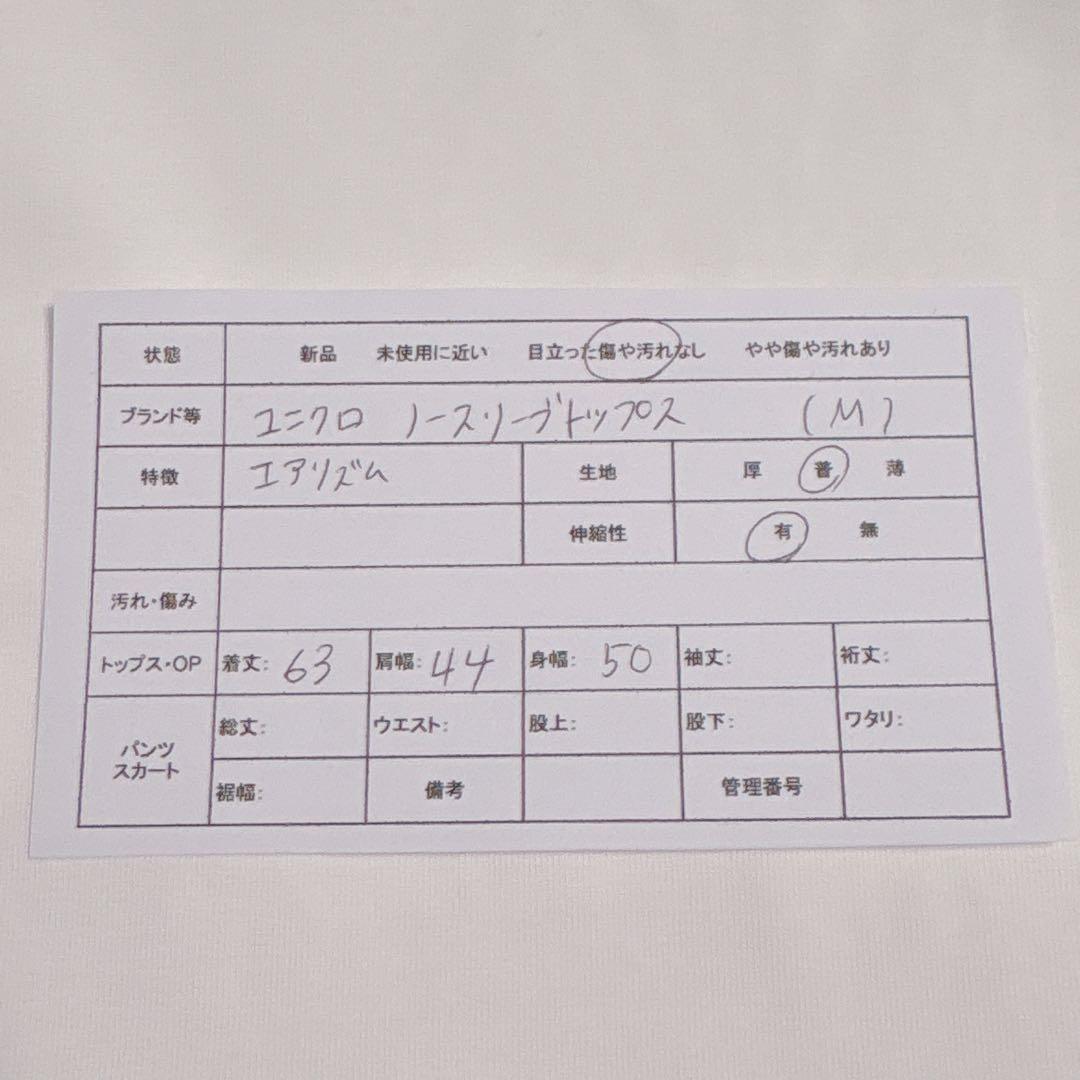 状態 新品 未使用に近い 目立った傷や汚れなし やや傷や汚れあり
ブランド等 ユニクロ ノースリーブトップス (M)
特徴 エアリズム 生地 厚 普 薄
伸縮性 有 無
汚れ・傷み
トップス・OP 着丈: 63 肩幅: 44 身幅: 50 袖丈: 裄丈:
パンツ
スカート
総丈: ウエスト: 股上: 股下: ワタリ:
裾幅: 備考 管理番号